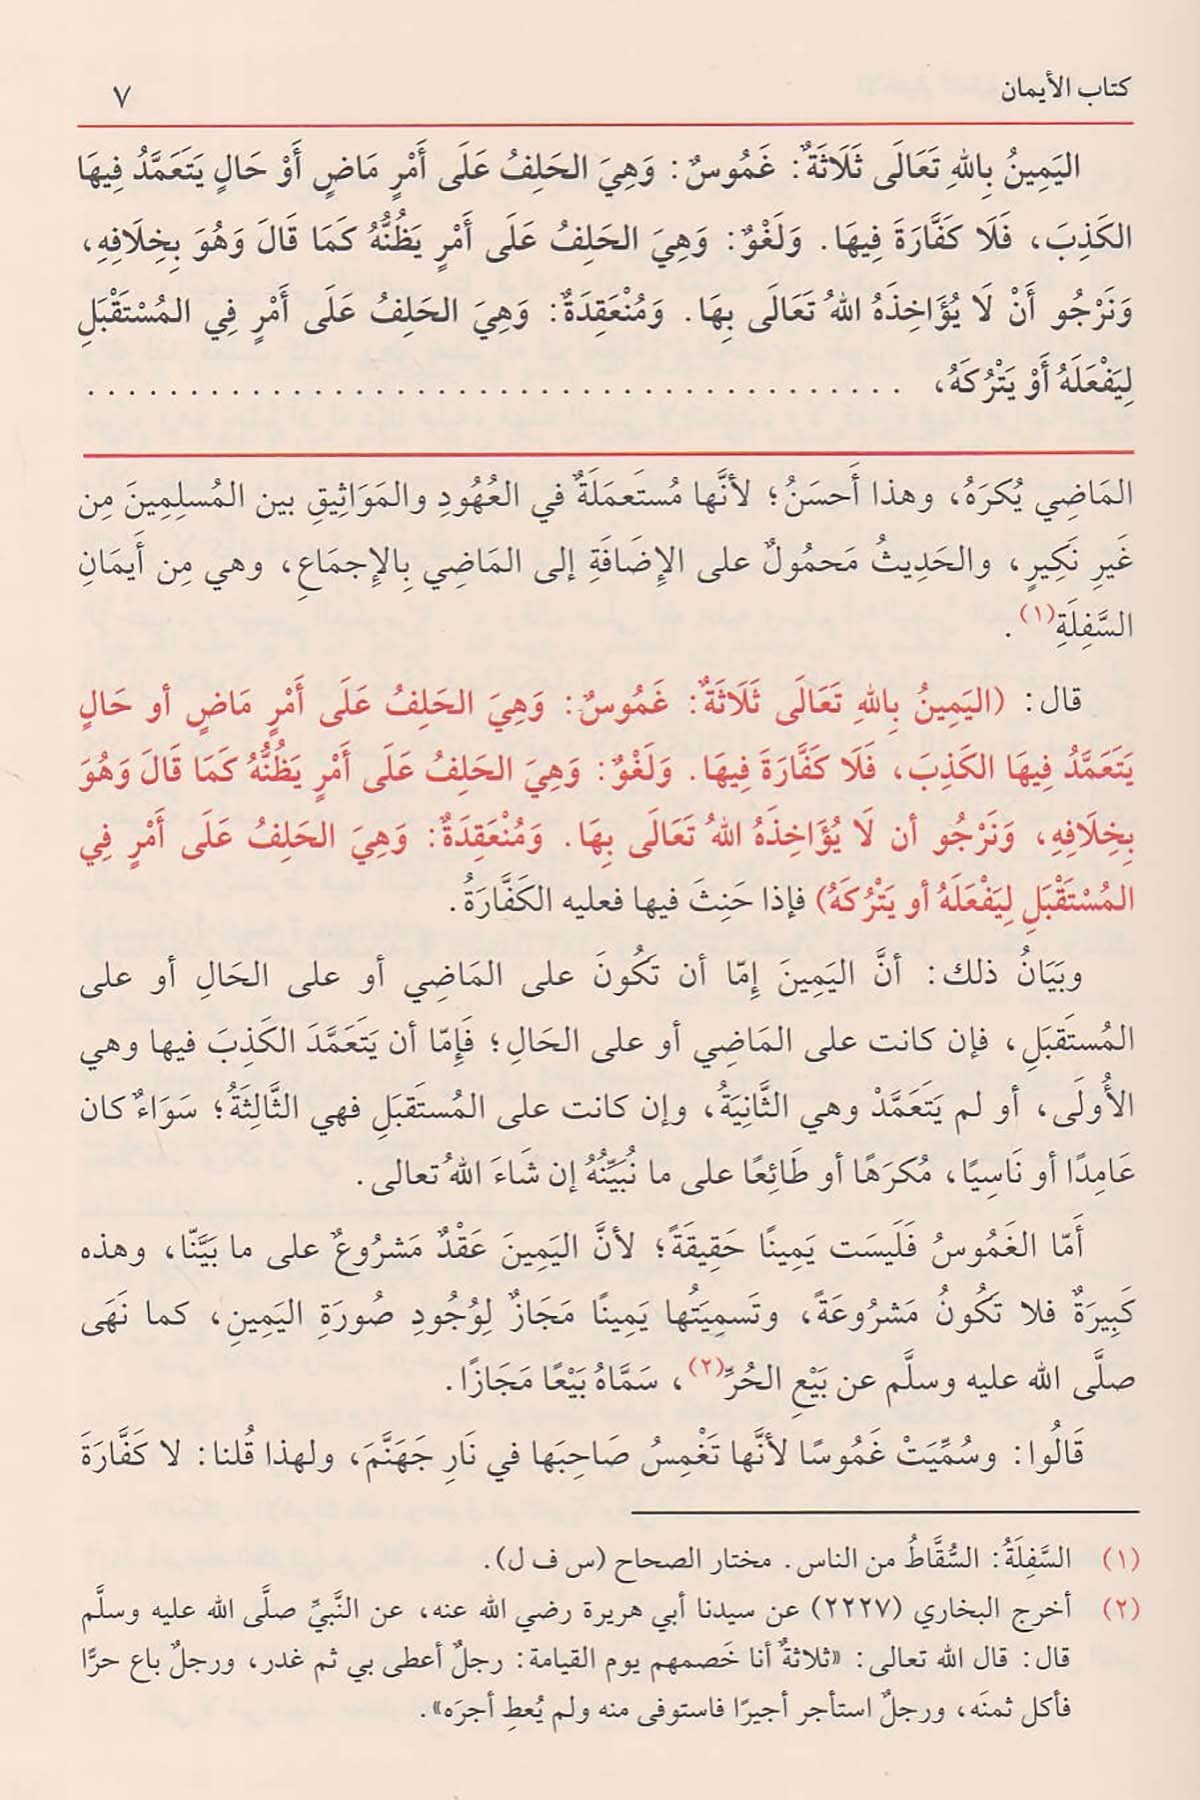 كتاب الأيمان
٧
اليَمِينُ بِاللهِ تَعَالَى ثَلَاثَةٌ: غَمُوسٌ: وَهِيَ الحَلِفُ عَلَى أَمْرٍ مَاضٍ أَوْ حَالٍ يَتَعَمَّدُ فِيهَا
الكَذِبَ، فَلَا كَفَّارَةَ فِيهَا. وَلَغْوٌ: وَهِيَ الحَلِفُ عَلَى أَمْرٍ يَظُنُّهُ كَمَا قَالَ وَهُوَ بِخِلَافِهِ،
وَنَرْجُو أَنْ لَا يُؤَاخِذَهُ اللهُ تَعَالَى بِهَا. وَمُنْعَقِدَةٌ: وَهِيَ الحَلِفُ عَلَى أَمْرٍ فِي المُسْتَقْبَلِ
لِيَفْعَلَهُ أَوْ يَتْرُكَهُ، . . . . . . . . . . . . . . . . . . . . . . . . . . . . . . . . . . . . . .
المَاضِي يُكرَهُ، وهذا أَحسَنُ؛ لأنَّها مُستَعمَلَةٌ في العُهُودِ والمَوَاثِيقِ بين المُسلِمِينَ مِن
غَيرِ نَكِيرٍ، والحَدِيثُ مَحمُولٌ على الإِضَافَةِ إلى المَاضِي بِالإِجمَاعِ، وهي مِن أَيمَانِ
السَّفِلَةِ(١).
قال: (اليَمِينُ بِاللهِ تَعَالَى ثَلَاثَةٌ: غَمُوسٌ: وَهِيَ الحَلِفُ عَلَى أَمْرٍ مَاضٍ أو حَالٍ
يَتَعَمَّدُ فِيهَا الكَذِبَ، فَلَا كَفَّارَةَ فِيهَا. وَلَغْوٌ: وَهِيَ الحَلِفُ عَلَى أَمْرٍ يَظُنُّهُ كَمَا قَالَ وَهُوَ
بِخِلَافِهِ، وَنَرْجُو أن لَا يُؤَاخِذَهُ اللهُ تَعَالَى بِهَا. وَمُنْعَقِدَةٌ: وَهِيَ الحَلِفُ عَلَى أَمْرٍ فِي
المُسْتَقْبَلِ لِيَفْعَلَهُ أو يَتْرُكَهُ) فإذا حَنِثَ فيها فعليه الكَفَّارَةُ.
وبَيَانُ ذلك: أنَّ اليَمِينَ إمّا أن تَكُونَ على المَاضِي أو على الحَالِ أو على
المُستَقبَلِ، فإن كانت على المَاضِي أو على الحَالِ؛ فَإِمّا أن يَتَعَمَّدَ الكَذِبَ فيها وهي
الأُولَى، أو لم يَتَعَمَّدْ وهي الثَّانِيَةُ، وإن كانت على المُستَقبَلِ فهي الثَّالِثَةُ؛ سَوَاءٌ كان
عَامِدًا أو نَاسِيًا، مُكرَهًا أو طَائِعًا على ما نُبَيِّنُهُ إن شَاءَ اللهُ تعالى.
أَمّا الغَمُوسُ فَلَيسَت يَمِينًا حَقِيقَةً؛ لأنَّ اليَمِينَ عَقْدٌ مَشرُوعٌ على ما بَيَّنّا، وهذه
كَبِيرَةٌ فلا تَكُونُ مَشرُوعَةً، وتَسمِيَتُها يَمِينًا مَجَازٌ لِوُجُودِ صُورَةِ اليَمِينِ، كما نَهَى
صلَّى الله عليه وسلَّم عن بَيْعِ الحُرِّ(٢)، سَمَّاهُ بَيْعًا مَجَازًا.
قَالُوا: وسُمِّيَتْ غَمُوسًا لأنَّها تَغْمِسُ صَاحِبَها في نَارِ جَهَنَّمَ، ولهذا قُلنا: لا كَفَّارَةَ
(١) السَّفِلَةُ: السُّقَّاطُ من الناس. مختار الصحاح (س ف ل).
(٢) أخرج البخاري (٢٢٢٧) عن سيدنا أبي هريرة رضي الله عنه، عن النَّبيِّ صلَّى الله عليه وسلَّم
قال: قال الله تعالى: «ثلاثةٌ أنا خَصمهم يوم القيامة: رجلٌ أعطى بي ثم غدر، ورجلٌ باع حرًّا
فأكل ثمنَه، ورجلٌ استأجر أجيرًا فاستوفى منه ولم يُعطِ أجرَه».